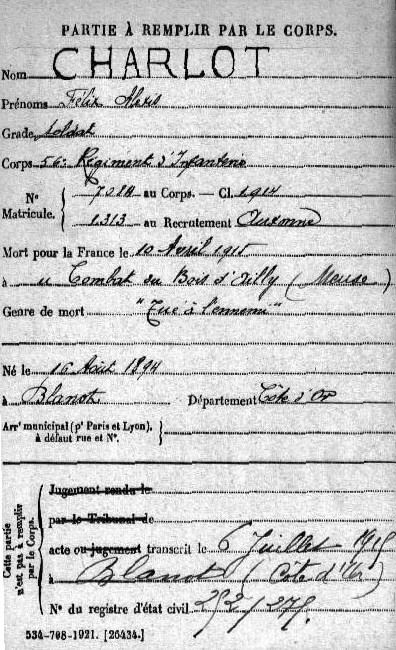 PARTIE À REMPLIR PAR LE CORPS.
Nom CHARLOT
Prénoms Félix Alexis
Grade soldat
Corps 56e Régiment d'Infanterie
No Matricule. 7084 au Corps. — Cl. 1914
1313 au Recrutement Auxonne
Mort pour la France le 10 Avril 1915
à Combat du Bois d'Ailly (Meuse)
Genre de mort "Tué à l'ennemi"
Né le 16 Août 1894
à Blanot Département Côte d'Or
Arrt municipal (pr Paris et Lyon),
à défaut rue et No.
Cette partie
n'est pas à remplir
par le Corps.
Jugement rendu le
par le Tribunal de
acte ou jugement transcrit le 6 Juillet 1915
à Blanot (Côte d'Or)
No du registre d'état civil
534-708-1921. [26434.]